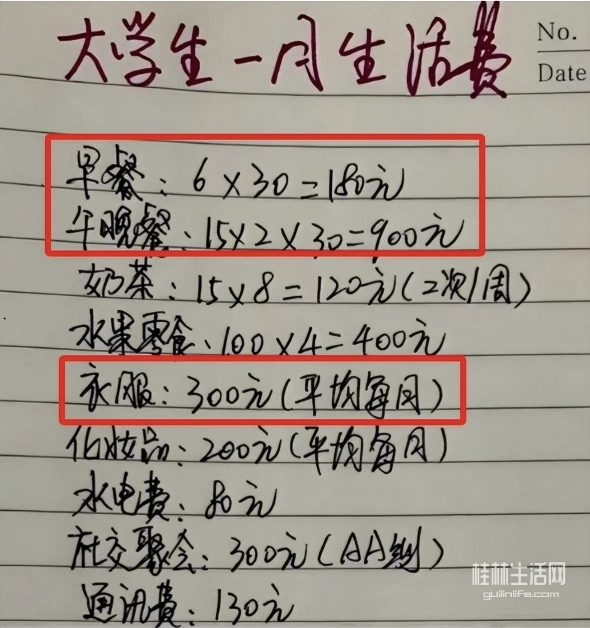 大学生一月生活费
No.
Date
早餐：6×30=180元
午晚餐：15×2×30=900元
奶茶：15×8=120元（2次/周）
水果零食：100×4=400元
衣服：300元（平均每月）
化妆品：200元（平均每月）
水电费：80元
社交聚会：300元（AA制）
通讯费：130元
桂林生活网
guilinlife.com